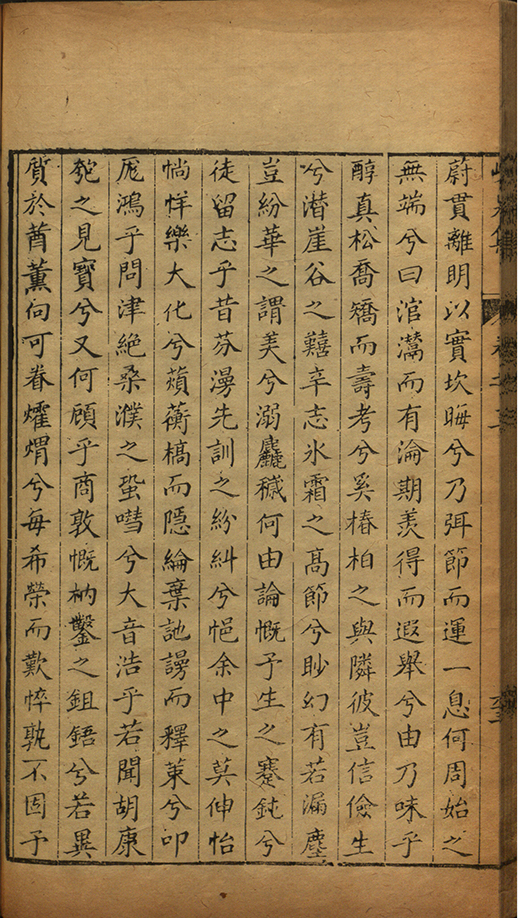 蔚貫離明以實坎晦兮乃弭節而運一息何周始之
無端兮曰涫鬵而有淪期羨得而遐舉兮由乃味乎
醇真松喬矯而壽考兮奚椿柏之與隣彼豈信儉生
兮潜崖谷之囏辛志氷霜之髙節兮眇幻有若漏塵
豈紛華之謂美兮溺麤穢何由論慨予生之蹇鈍兮
徒留志乎昔芬漫先訓之紛糾兮悒余中之莫伸怡
惝怑樂大化兮蘋蘅槁而隱綸棄訑謾而釋䇿兮叩
厖鴻乎問津絶桑濮之蛩嘒兮大音浩乎若聞胡康
瓠之見寶兮又何顧乎商敦慨枘鑿之鉏鋙兮若異
質於蕕薰向可眷燿熠兮每希榮而歎悴孰不固予